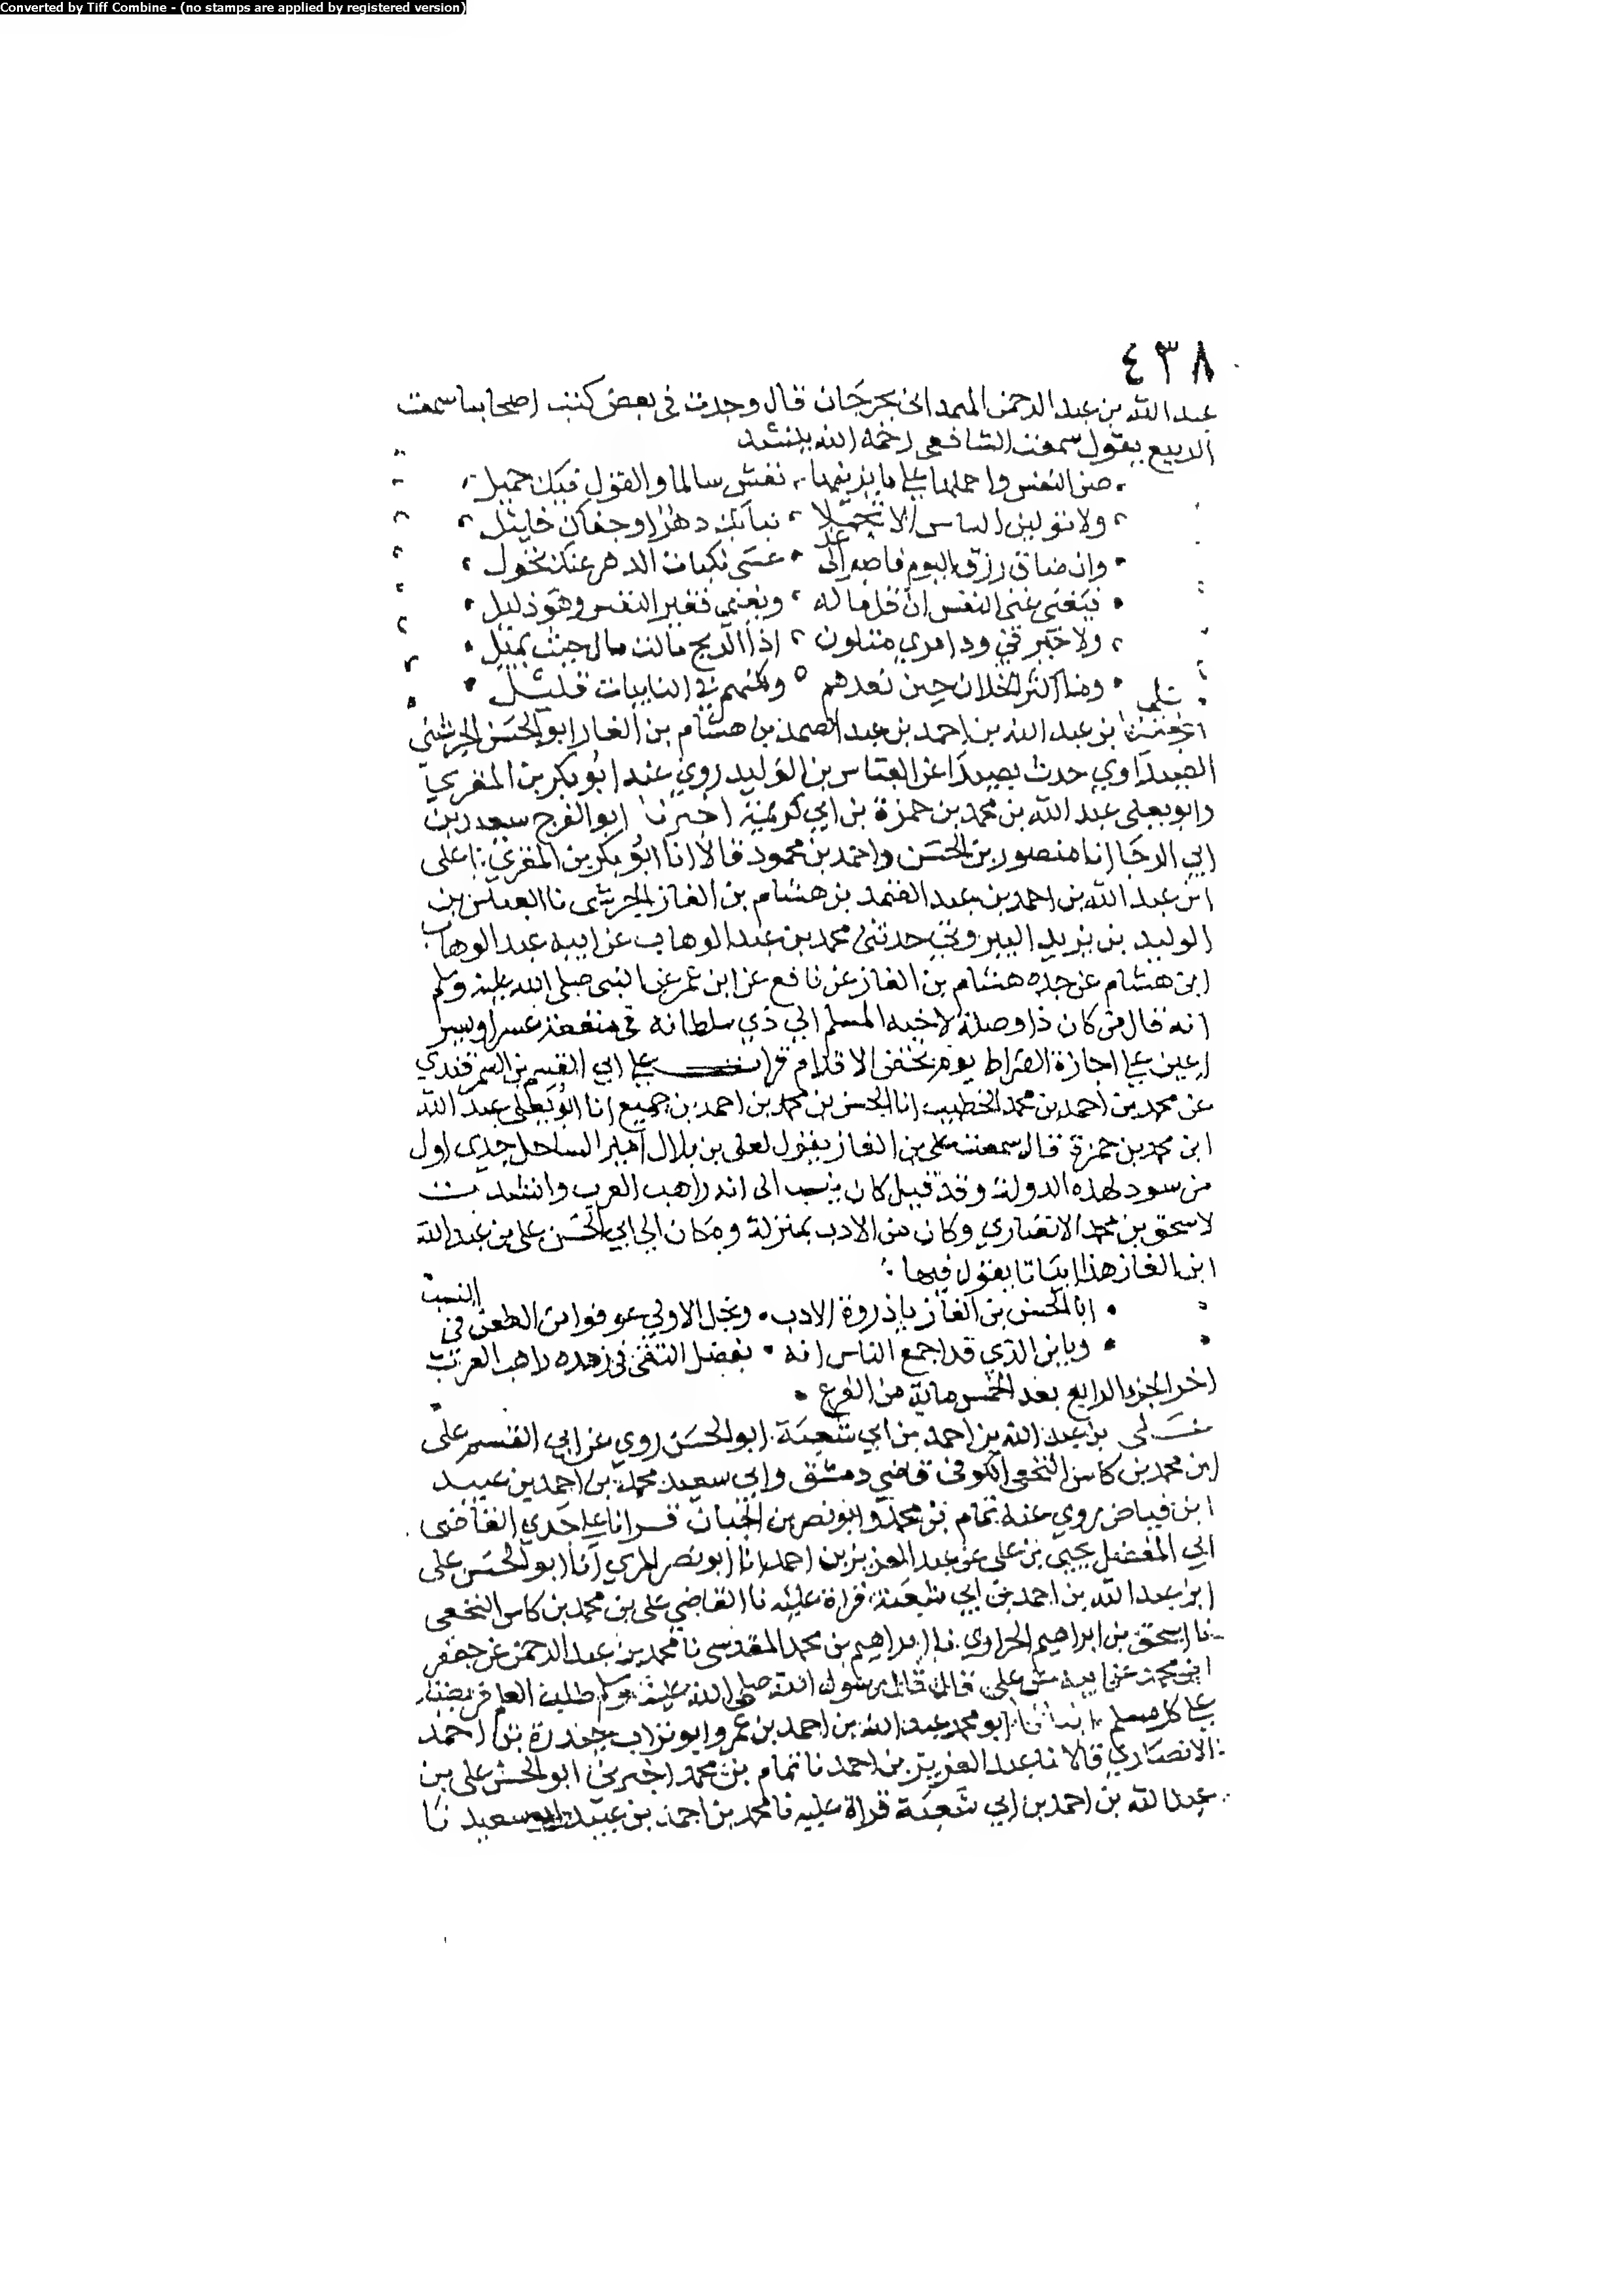 Converted by Tiff Combine - (no stamps are applied by registered version)
٤٣٨
عبد الله بن عبد الرحمن الهمداني بجرجان قال وجدت في بعض كتب اصحابنا سمعت
الربيع يقول سمعت الشافعي رحمه الله ينشد
صن النفس واحملها على ما يزينها تعش سالما والقول فيك جميل
ولا تولين الناس الا تجملا نبا بك دهر او جفاك خليل
وان ضاق رزق اليوم فاصبر الى غد عسى نكبات الدهر عنك تحول
فيغنى غني النفس ان قل ماله ويغنى فقير النفس وهو ذليل
ولا خير في ود امرئ متلون اذا الريح مالت مال حيث تميل
وما اكثر الخلان حين تعدهم ولكنهم في النايبات قليل
علي بن عبد الله بن احمد بن عبد الصمد بن هشام بن الغاز ابو الحسن الجرشي
الصيداوي حدث بصيدا عن العباس بن الوليد روى عنه ابو بكر بن المقري
وابو يعلى عبد الله بن محمد بن حمزة بن ابي كريمة اخبرنا ابو الفرج سعيد بن
ابي الرجا انا منصور بن الحسن واحمد بن محمود قالا انا ابو بكر بن المقري نا على
ابن عبد الله بن احمد بن عبد الصمد بن هشام بن الغاز الجرشي نا العباس بن
الوليد بن يزيد البيروتي حدثني محمد بن عبد الوهاب عن ابيه عبد الوهاب
ابن هشام عن جده هشام بن الغاز عن نافع عن ابن عمر عن النبي صلى الله عليه وسلم
انه قال من كان ذا وصلة لاخيه المسلم الى ذي سلطانه في منفعة عسر او يسر
اعين على اجازة الصراط يوم تخفض الاقدام قرات على ابي القسم بن السمرقندي
عن محمد بن احمد بن محمد الخطيب انا الحسن بن محمد بن احمد بن جميع انا ابو يعلى عبد الله
ابن محمد بن حمزة قال سمعت على بن الغاز يقول لعلى بن بلال امير الساحل جدي اول
من سود لهذه الدولة وقد قيل كان ينسب الى انه راهب العرب وانشدت
لاسحق بن محمد الانصاري وكان من الادب بمنزلة ومكان الى ابي الحسن على بن عبد الله
ابن الغاز هذا ابياتا يقول فيها
ابا الحسن بن الغاز يا ذروة الادب ونجل الاولي عوفوا من الطعن في النسب
ويا بن الذي قد اجمع الناس انه بفضل التقى في زهده راهب العرب
اخر الجزء الرابع بعد الخمس ماية من الفرع
علي بن عبد الله بن احمد بن ابي شعبة ابو الحسن روي عن ابي القسم على
ابن محمد بن كاس النخعي الكوفي قاضي دمشق وابي سعيد محمد بن احمد بن عبيد
ابن فياض روي عنه تمام بن محمد وابو نصر بن الجبان قرانا على جدي القاضي
ابي المفضل يحيى بن على عن عبد العزيز بن احمد انا ابو نصر المري انا ابو الحسن على
ابن عبد الله بن احمد بن ابي شعبة قراة عليه نا القاضي على بن محمد بن كاس النخعي
نا اسحق بن ابراهيم الحراوي نا ابراهيم بن محمد المقدسي نا محمد بن عبد الرحمن عن جعفر
ابن محمد عن ابيه عن على قال قال رسول الله صلى الله عليه وسلم طلب العلم فريضة
على كل مسلم انبانا ابو محمد عبد الله بن احمد بن عمر وابو تراب حيدرة بن احمد
الانصاري قالا نا عبد العزيز بن احمد نا تمام بن محمد اخبرني ابو الحسن على بن
عبد الله بن احمد بن ابي شعبة قراة عليه نا محمد بن احمد بن عبيد ابو سعيد نا